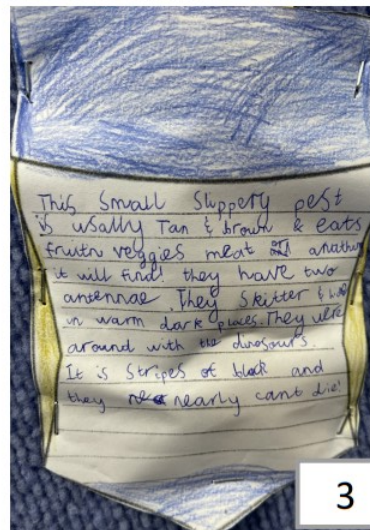 This Small Slippery pest
is usally Tan & brown & eats
fruitn veggies meat anather
it will find! they have two
antennae. They Skitter &
in warm dark places. They were
around with the dinosaurs.
It is Stripes of black and
they nearly cant die!
3